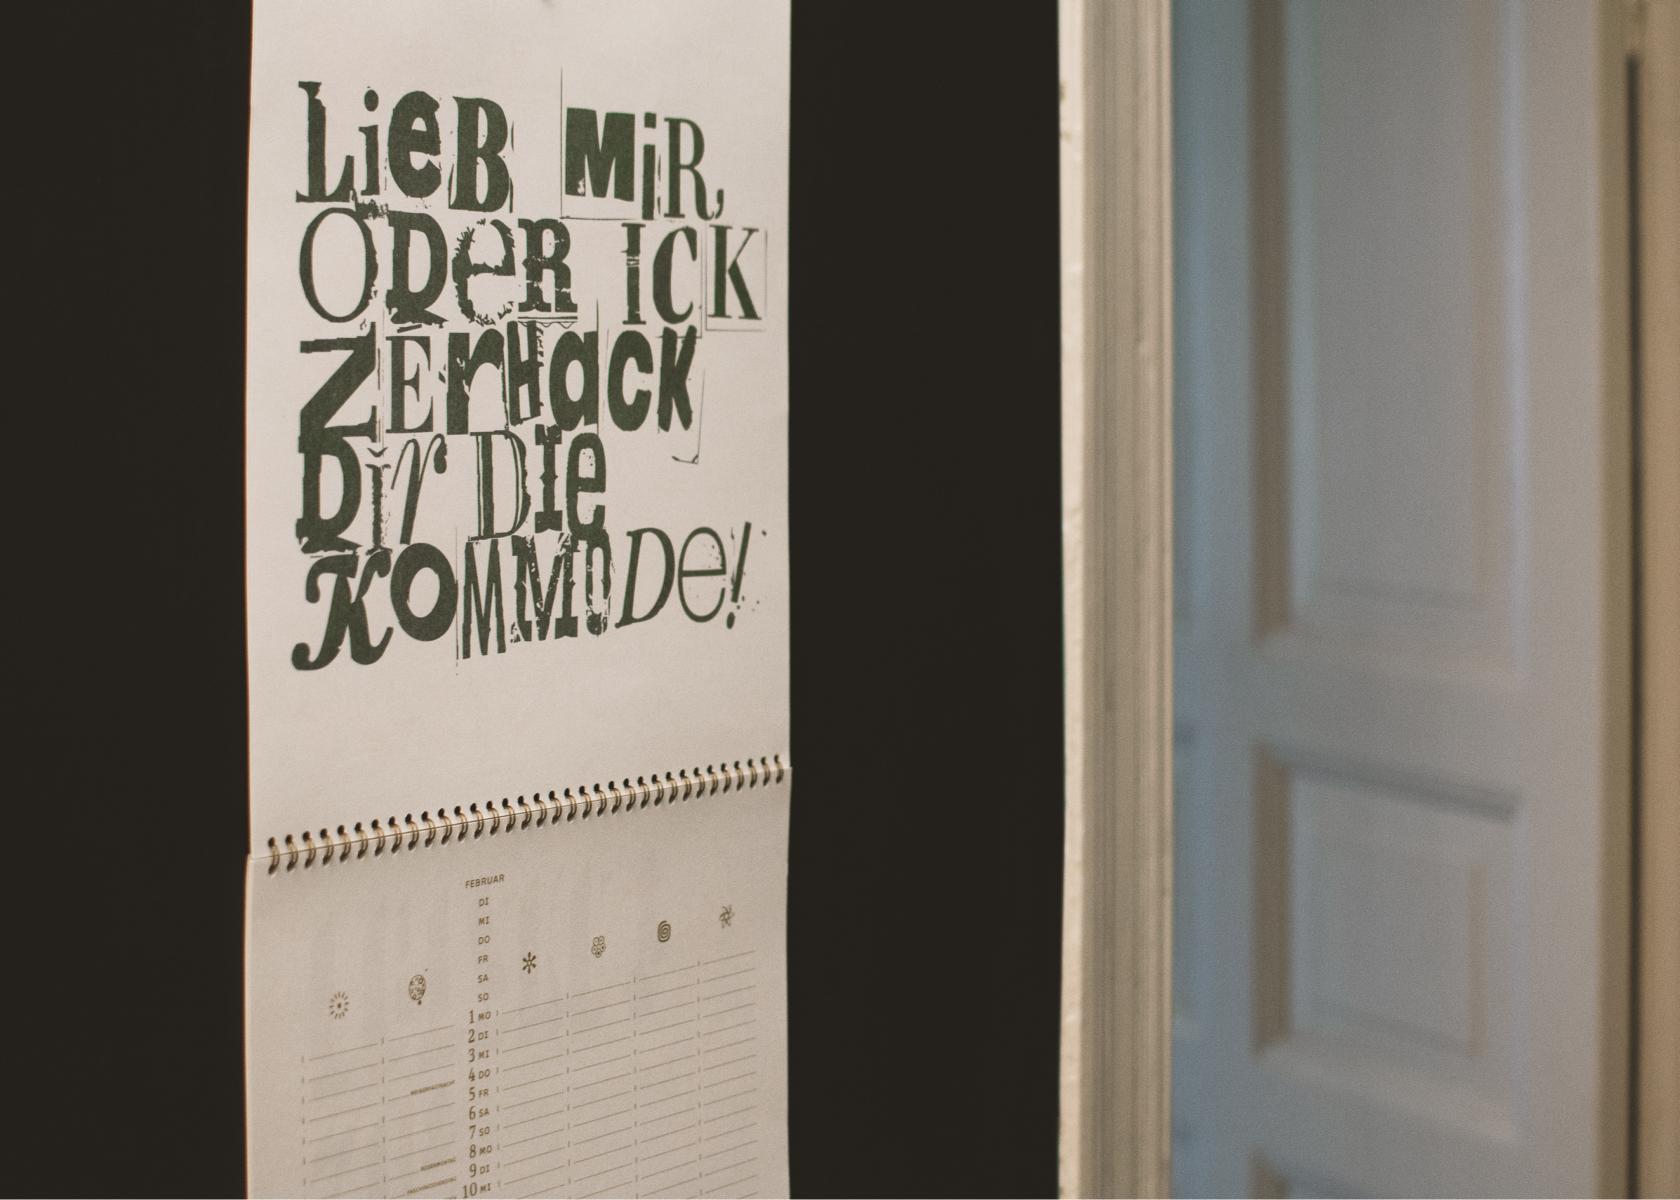 LieB MiR,
ODeR ICK
ZErHack
Dir DIe
KOMMODe!
FEBRUAR
DI
MI
DO
FR
SA
SO
1 MO
2 DI
3 MI
4 DO
5 FR
6 SA
7 SO
8 MO
ROSENMONTAG
9 DI
10 MI